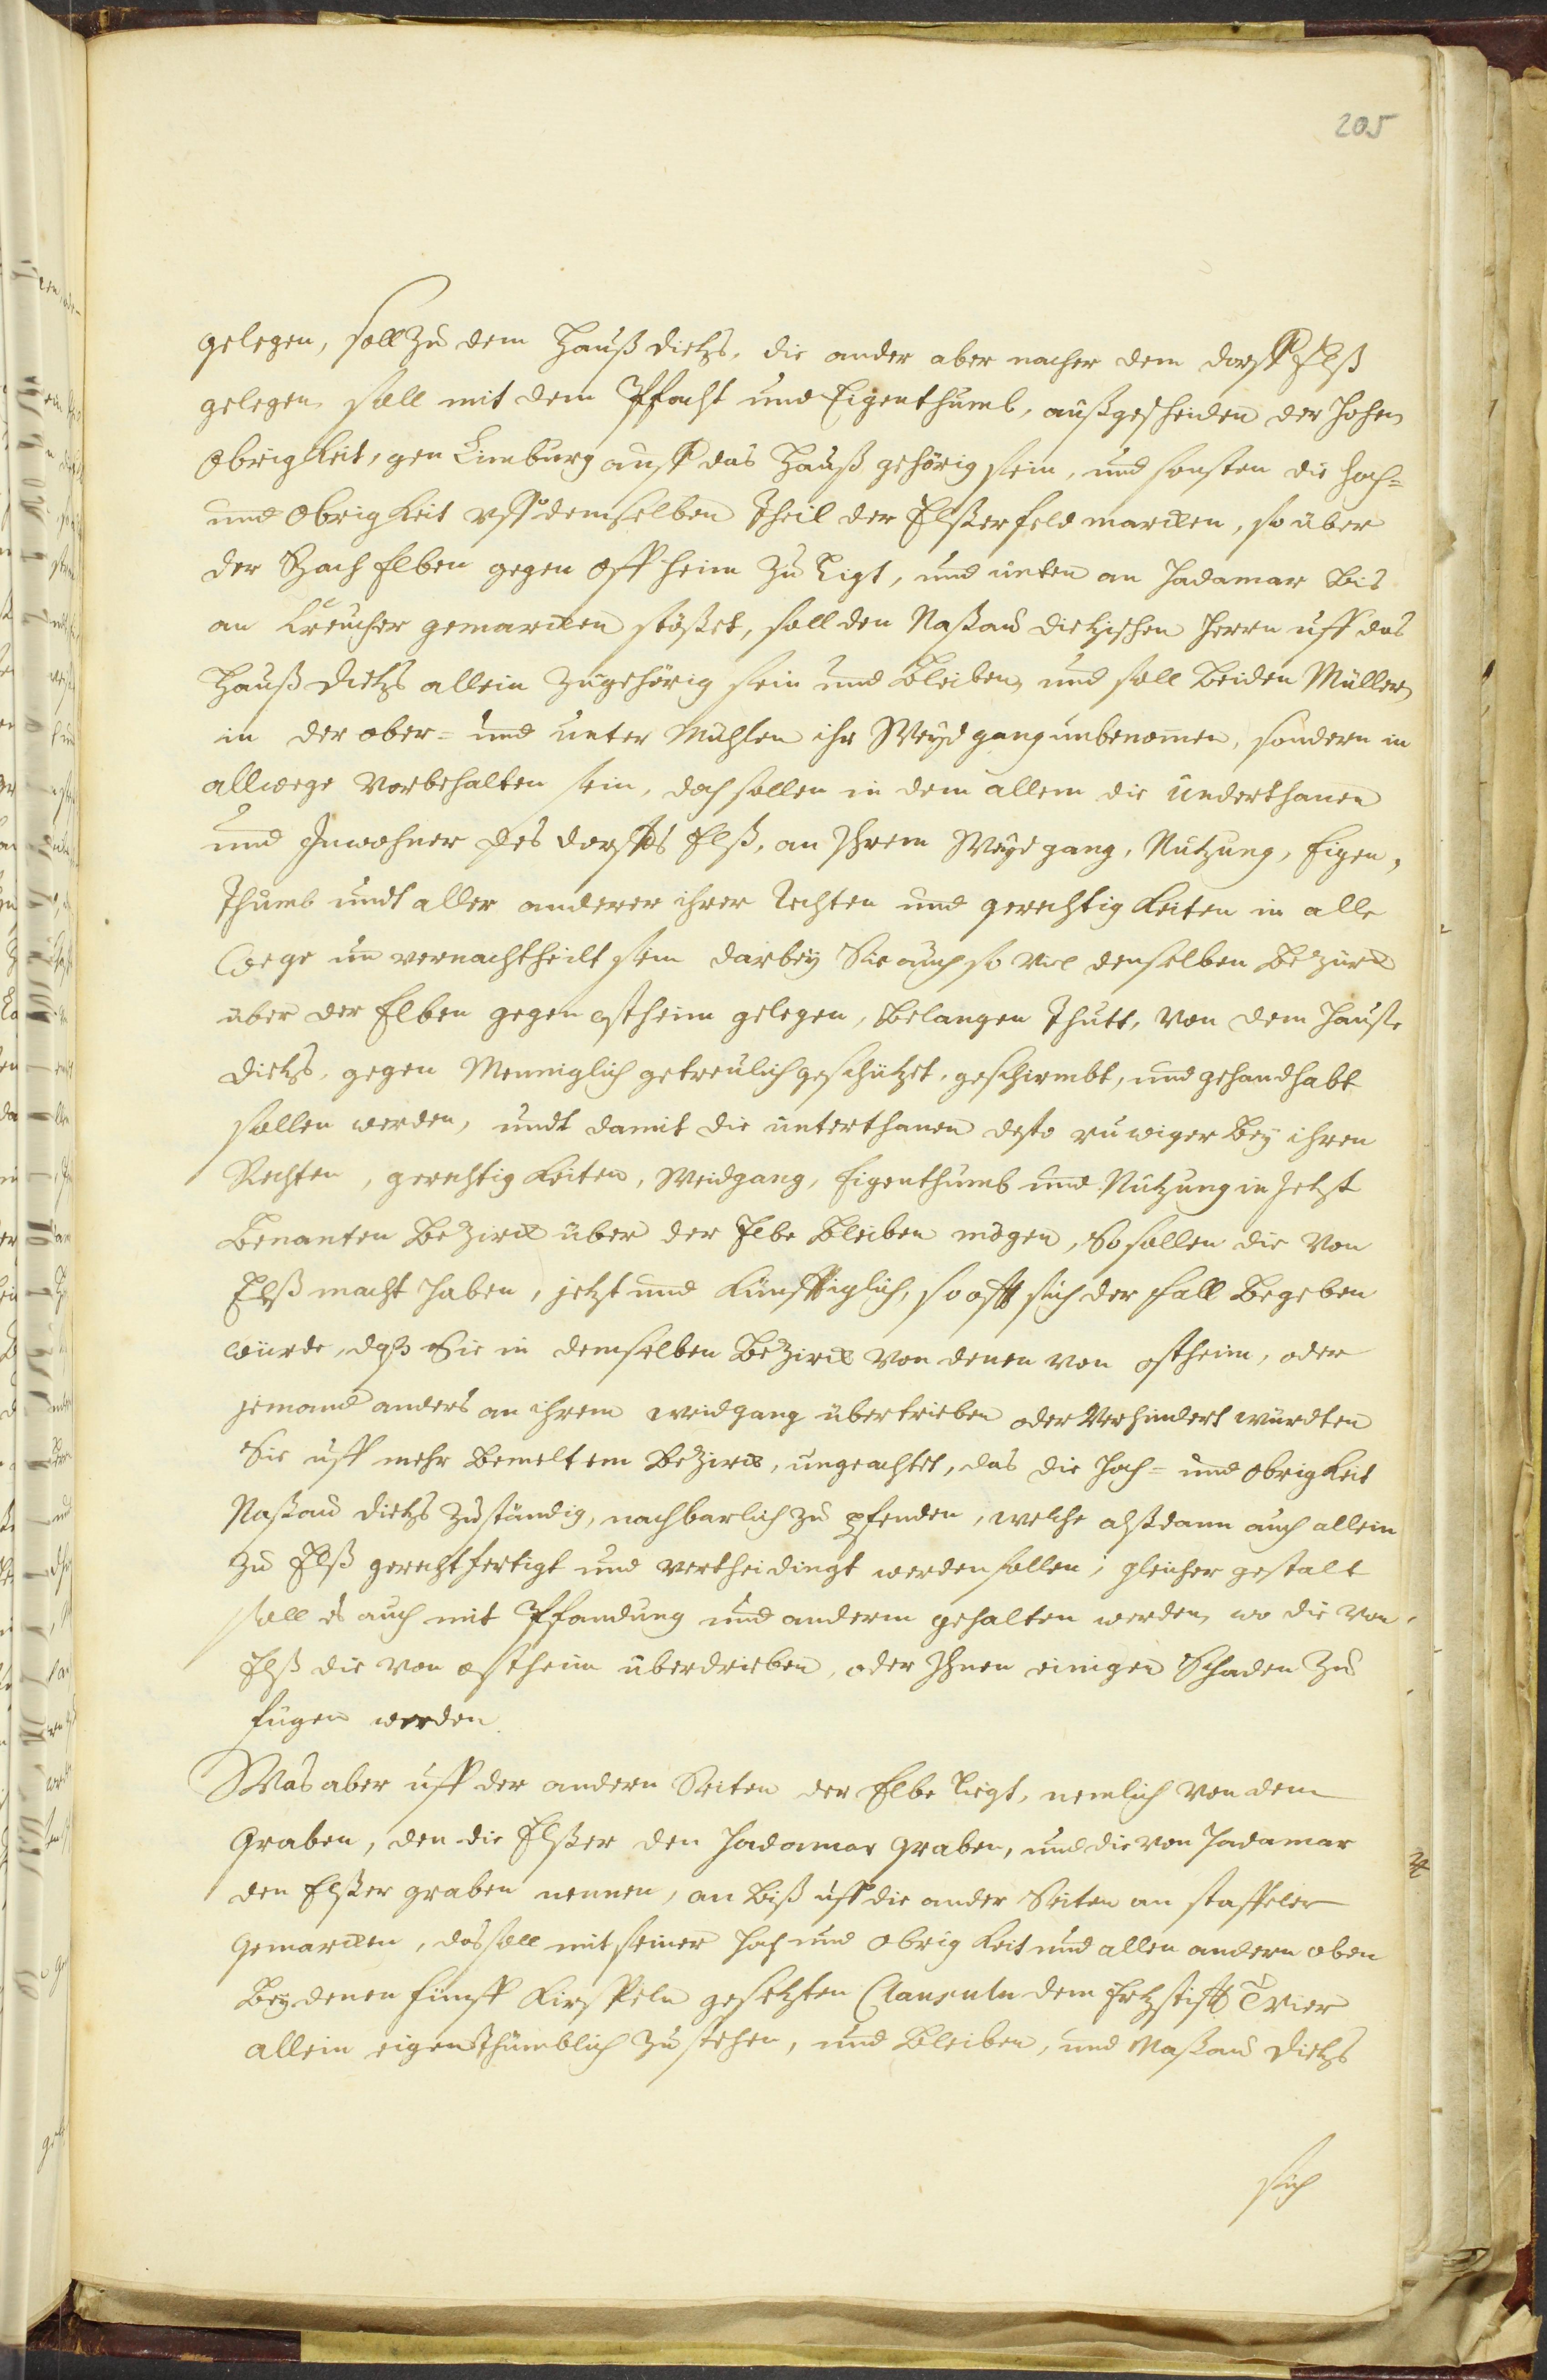 205
gelegen, soll zu dem Hauß Dietz, die ander aber nacher dem dorff Elß
gelegen soll mit dem Pfacht und Eigenthumb, außgescheiden der Hohen
Obrigkeit, gen Limburg auff das Hauß gehörig sein, und sonsten die Hoch=
und Obrigkeit uff demselben Theil der Elßer feldmarcken, so über
der Bach Elben gegen Offheim zu ligt, und unten an Hadamar bis
an Creucher gemarcken stößet, soll den Naßau dietzischen Herrn uff das
Hauß dietz allein zugehörig sein und bleiben, und soll beiden Müller
in der ober= und unter Mühlen ihr Weyd gang unbenommen, sondern in
allwege vorbehalten sein, doch sollen in dem allem die underthanen
und Inwohner des dorffs Elß, an Ihrem Weydgang, Nutzung, Eigen,
Thumb undt aller anderer ihrer Rechten und gerechtigkeiten in alle
Wege un vernachtheilt sein darbey Sie auch so viel denselben bezürck
über der Elben gegen ofheim gelegen, belangen Thutt, von dem Hauße
dietz, gegen Menniglich getreulich geschützet, geschirmbt, und gehandhabt
sollen werden, undt damit die unterthanen desto ruwiger bey ihren
Rechten, gerechtigkeiten, Weidgang, Eigenthumb und Nutzung in Jetzt
benanten bezirck über der Elbe bleiben mögen, So sollen die von
Elß macht haben, jetzt und künfftiglich, so offt sich der fall begeben
würde, daß Sie in demselben bezirck von denen von ofheim, oder
jemand anders an ihrem weidgang übertrieben oder verhindert würdten
Sie uff mehr bemeltem bezirck, ungeachtet, das die Hoch= und Obrigkeit
Naßau dietz zuständig, nachbarlich zu pfenden, welche alßdann auch allein
zu Elß gerechtfertigt und vertheidingt werden sollen; gleicher gestalt
soll es auch mit Pfandung und anderm gehalten werden, wo die von
Elß die von ofheim überdrieben, oder Ihnen einigen Schaden zu
fügen werden.
Was aber uff der andern Seiten der Elbe liegt, nemlich von dem
Graben, den die Elßer den Hadamar graben, und die von Hadamar
den Elßer graben nennen, an biß uff die ander Seiten an staffeler
Gemarcken, das soll mit seiner Hoch und Obrigkeit und allen andern oben
bey denen fünff Kirspeln gesetzten Clausuln dem Ertzstifft Trier
allein eigenthümblich zu stehen, und bleiben, und Naßau dietz
sich